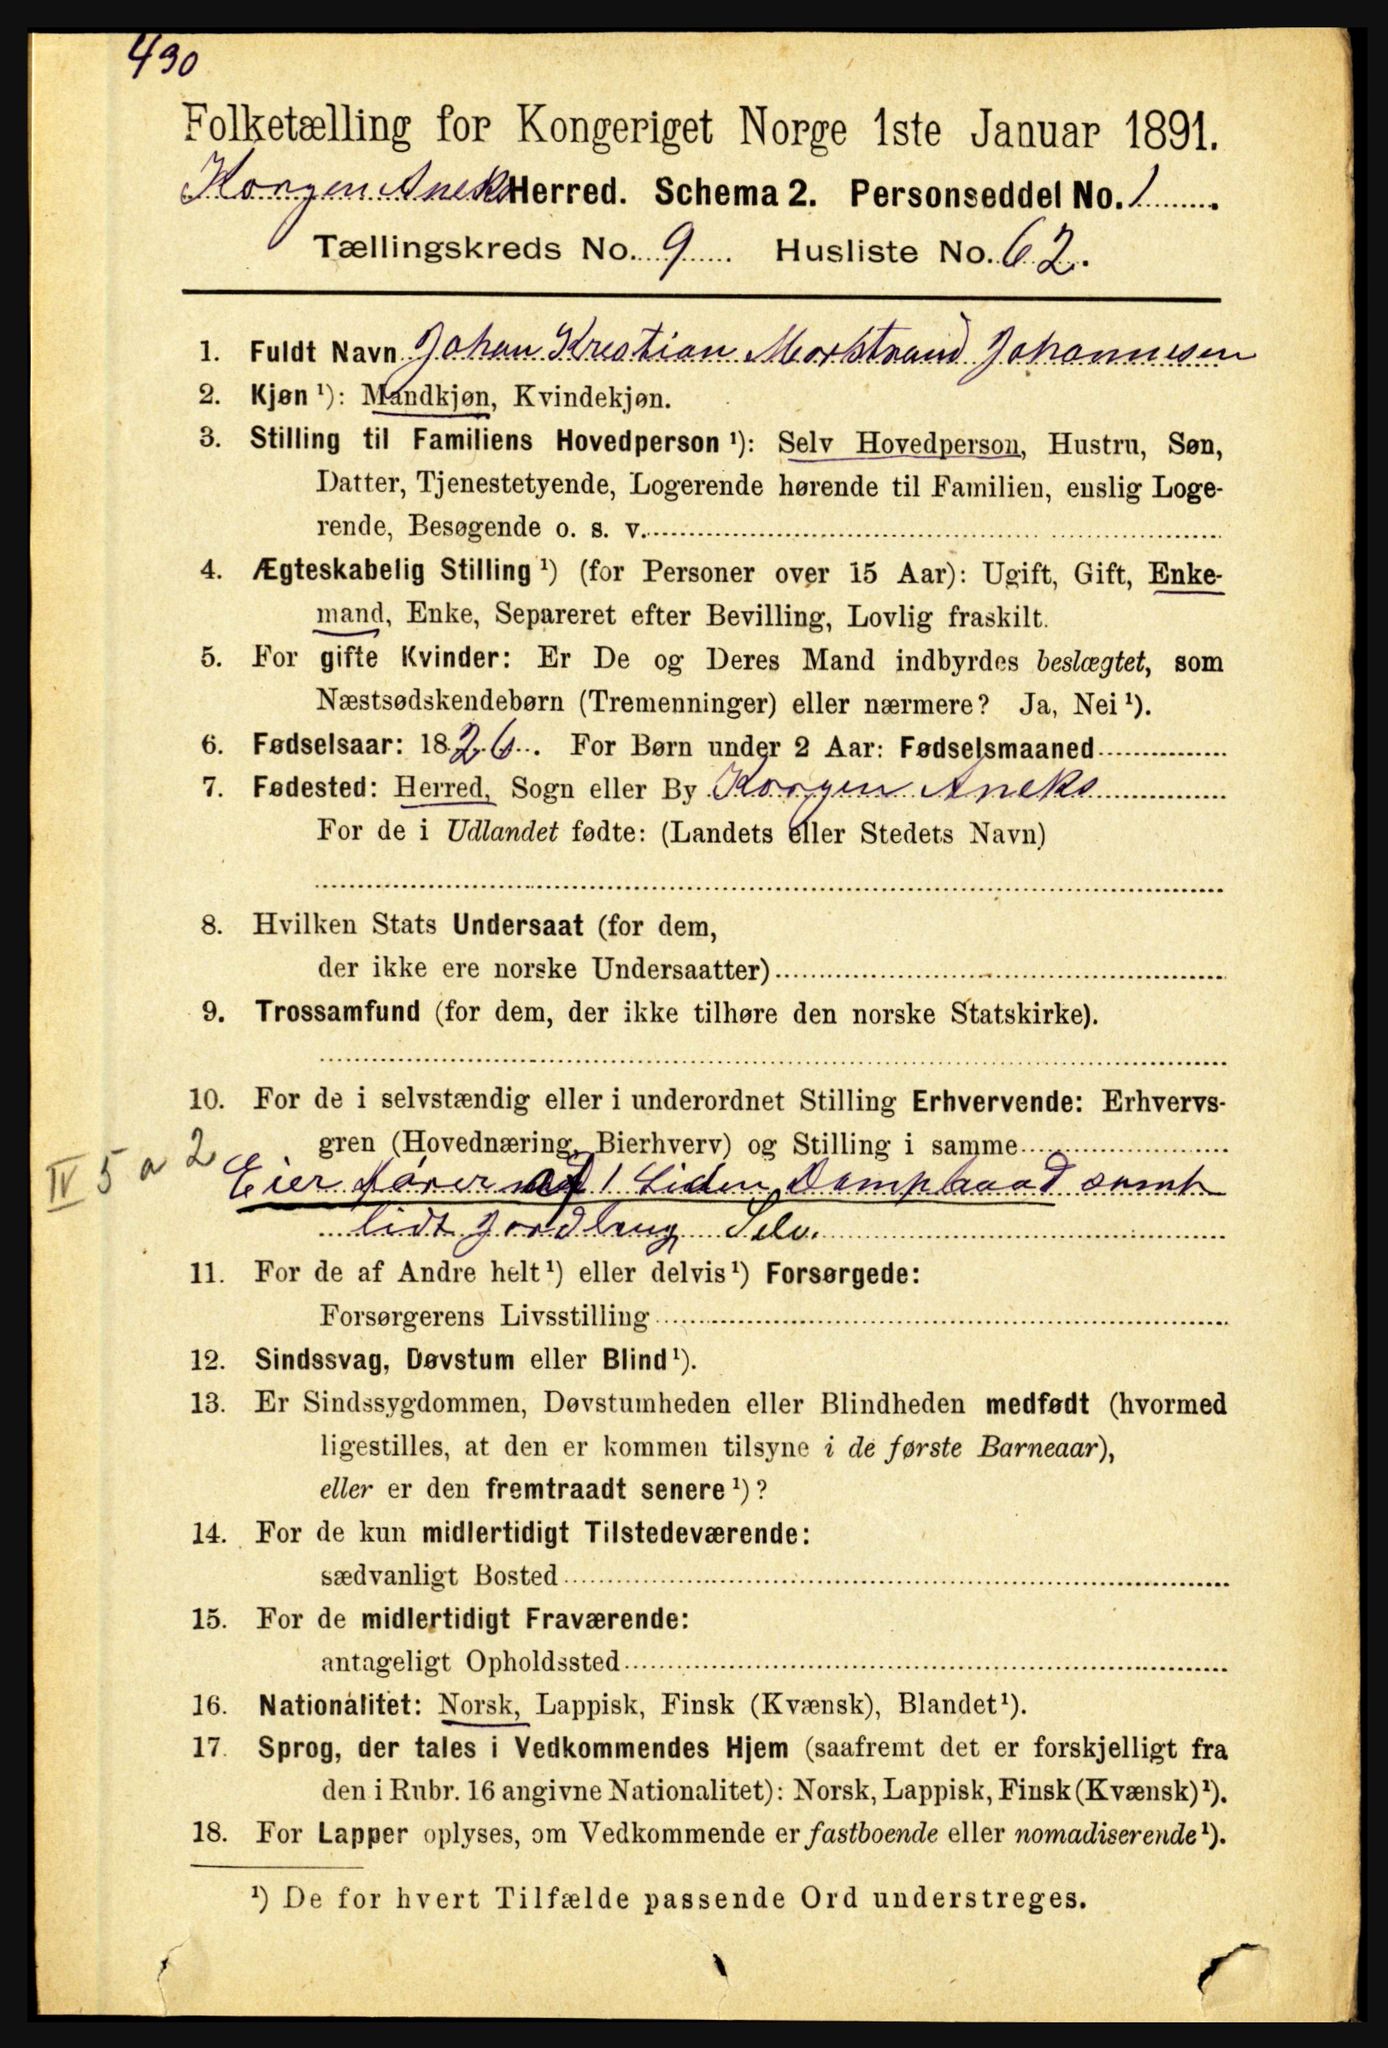 430
Folketælling for Kongeriget Norge 1ste Januar 1891.
Korgen Aneks Herred. Schema 2. Personseddel No. 1.
Tællingskreds No. 9. Husliste No. 62.
1. Fuldt Navn Johan Krestian Johannesen
2. Kjøn ¹): Mandkjøn, Kvindekjøn.
3. Stilling til Familiens Hovedperson ¹): Selv Hovedperson, Hustru, Søn,
Datter, Tjenestetyende, Logerende hørende til Familien, enslig Loge-
rende, Besøgende o. s. v.
4. Ægteskabelig Stilling ¹) (for Personer over 15 Aar): Ugift, Gift, Enke-
mand, Enke, Separeret efter Bevilling, Lovlig fraskilt.
5. For gifte Kvinder: Er De og Deres Mand indbyrdes beslægtet, som
Næstsødskendebørn (Tremenninger) eller nærmere? Ja, Nei ¹).
6. Fødselsaar: 1826. For Børn under 2 Aar: Fødselsmaaned
7. Fødested: Herred, Sogn eller By Korgen Aneks
For de i Udlandet fødte: (Landets eller Stedets Navn)
8. Hvilken Stats Undersaat (for dem,
der ikke ere norske Undersaatter)
9. Trossamfund (for dem, der ikke tilhøre den norske Statskirke).
10. For de i selvstændig eller i underordnet Stilling Erhvervende: Erhvervs-
gren (Hovednæring, Bierhverv) og Stilling i samme
IV 5 a 2
Eier fører af 1 Liden Dampbaad samt
lidt Jordbrug Selv.
11. For de af Andre helt ¹) eller delvis ¹) Forsørgede:
Forsørgerens Livsstilling
12. Sindssvag, Døvstum eller Blind ¹).
13. Er Sindssygdommen, Døvstumheden eller Blindheden medfødt (hvormed
ligestilles, at den er kommen tilsyne i de første Barneaar),
eller er den fremtraadt senere ¹)?
14. For de kun midlertidigt Tilstedeværende:
sædvanligt Bosted
15. For de midlertidigt Fraværende:
antageligt Opholdssted
16. Nationalitet: Norsk, Lappisk, Finsk (Kvænsk), Blandet ¹).
17. Sprog, der tales i Vedkommendes Hjem (saafremt det er forskjelligt fra
den i Rubr. 16 angivne Nationalitet): Norsk, Lappisk, Finsk (Kvænsk) ¹).
18. For Lapper oplyses, om Vedkommende er fastboende eller nomadiserende ¹).
¹) De for hvert Tilfælde passende Ord understreges.